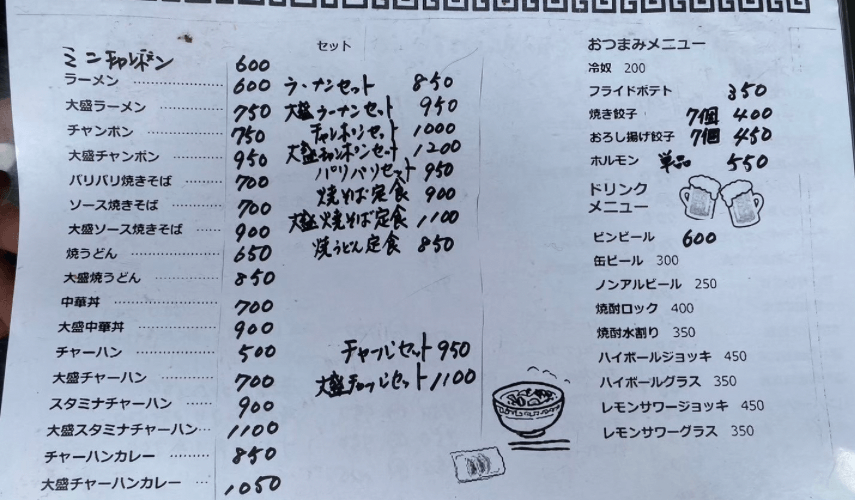 ミニチャンポン 600
ラーメン 600
大盛ラーメン 750
チャンポン 750
大盛チャンポン 950
バリバリ焼きそば 700
ソース焼きそば 700
大盛ソース焼きそば 900
焼うどん 650
大盛焼うどん 850
中華丼 700
大盛中華丼 900
チャーハン 500
大盛チャーハン 700
スタミナチャーハン 900
大盛スタミナチャーハン 1100
チャーハンカレー 850
大盛チャーハンカレー 1050
セット
ラーメンセット 850
大盛ラーメンセット 950
チャンポンセット 1000
大盛チャンポンセット 1200
バリバリセット 950
焼そば定食 900
大盛焼そば定食 1100
焼うどん定食 850
チャーハンセット 950
大盛チャーハンセット 1100
おつまみメニュー
冷奴 200
フライドポテト 350
焼き餃子 7個 400
おろし揚げ餃子 7個 450
ホルモン 単品 550
ドリンク
メニュー
ビンビール 600
缶ビール 300
ノンアルビール 250
焼酎ロック 400
焼酎水割り 350
ハイボールジョッキ 450
ハイボールグラス 350
レモンサワージョッキ 450
レモンサワーグラス 350